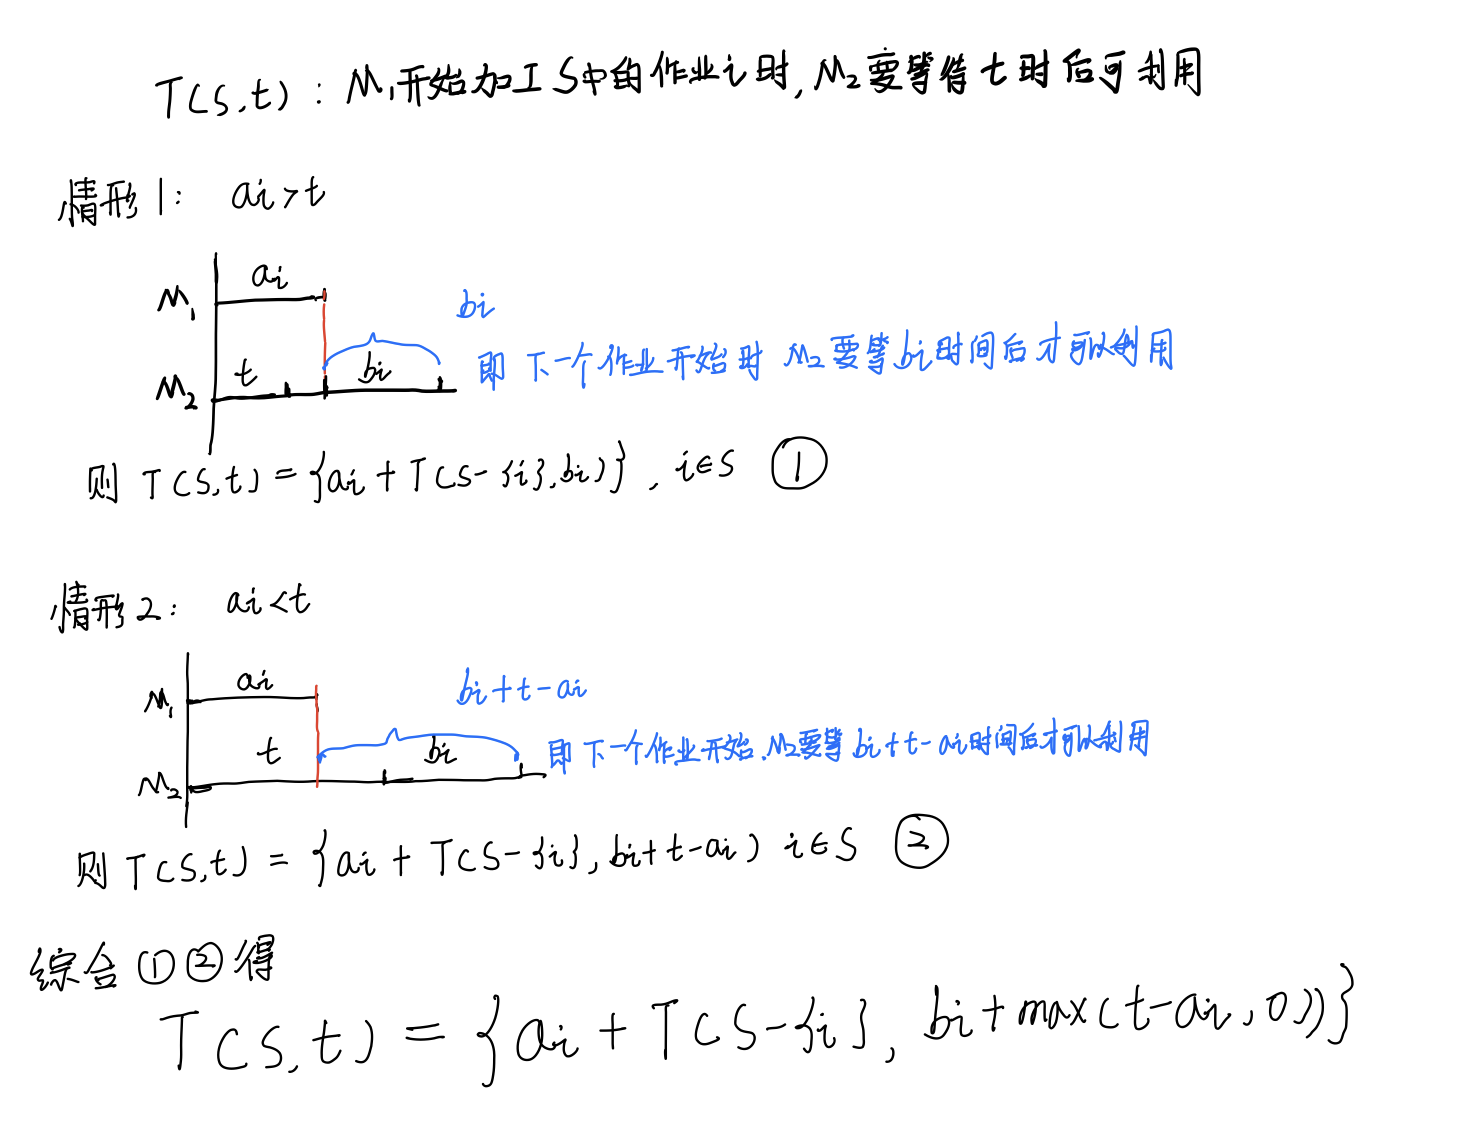 T(S,t)：M₁开始加工S中的作业i时,M₂要等待t时后可利用
情形1： ai>t
ai
M₁
bi
t
bi
M₂
即 下一个作业开始时 M₂要等bi时间后才可以利用
则 T(S,t)={ai+T(S-{i},bi)}, i∈S ①
情形2： ai<t
ai
M₁
bi+t-ai
t
bi
M₂
即下一个作业开始.M₂要等bi+t-ai时间后才可以利用
则 T(S,t) = {ai + T(S-{i}, bi+t-ai) i∈S ②
综合①②得
T(S,t) = {ai + T(S-{i}, bi+max(t-ai,0))}